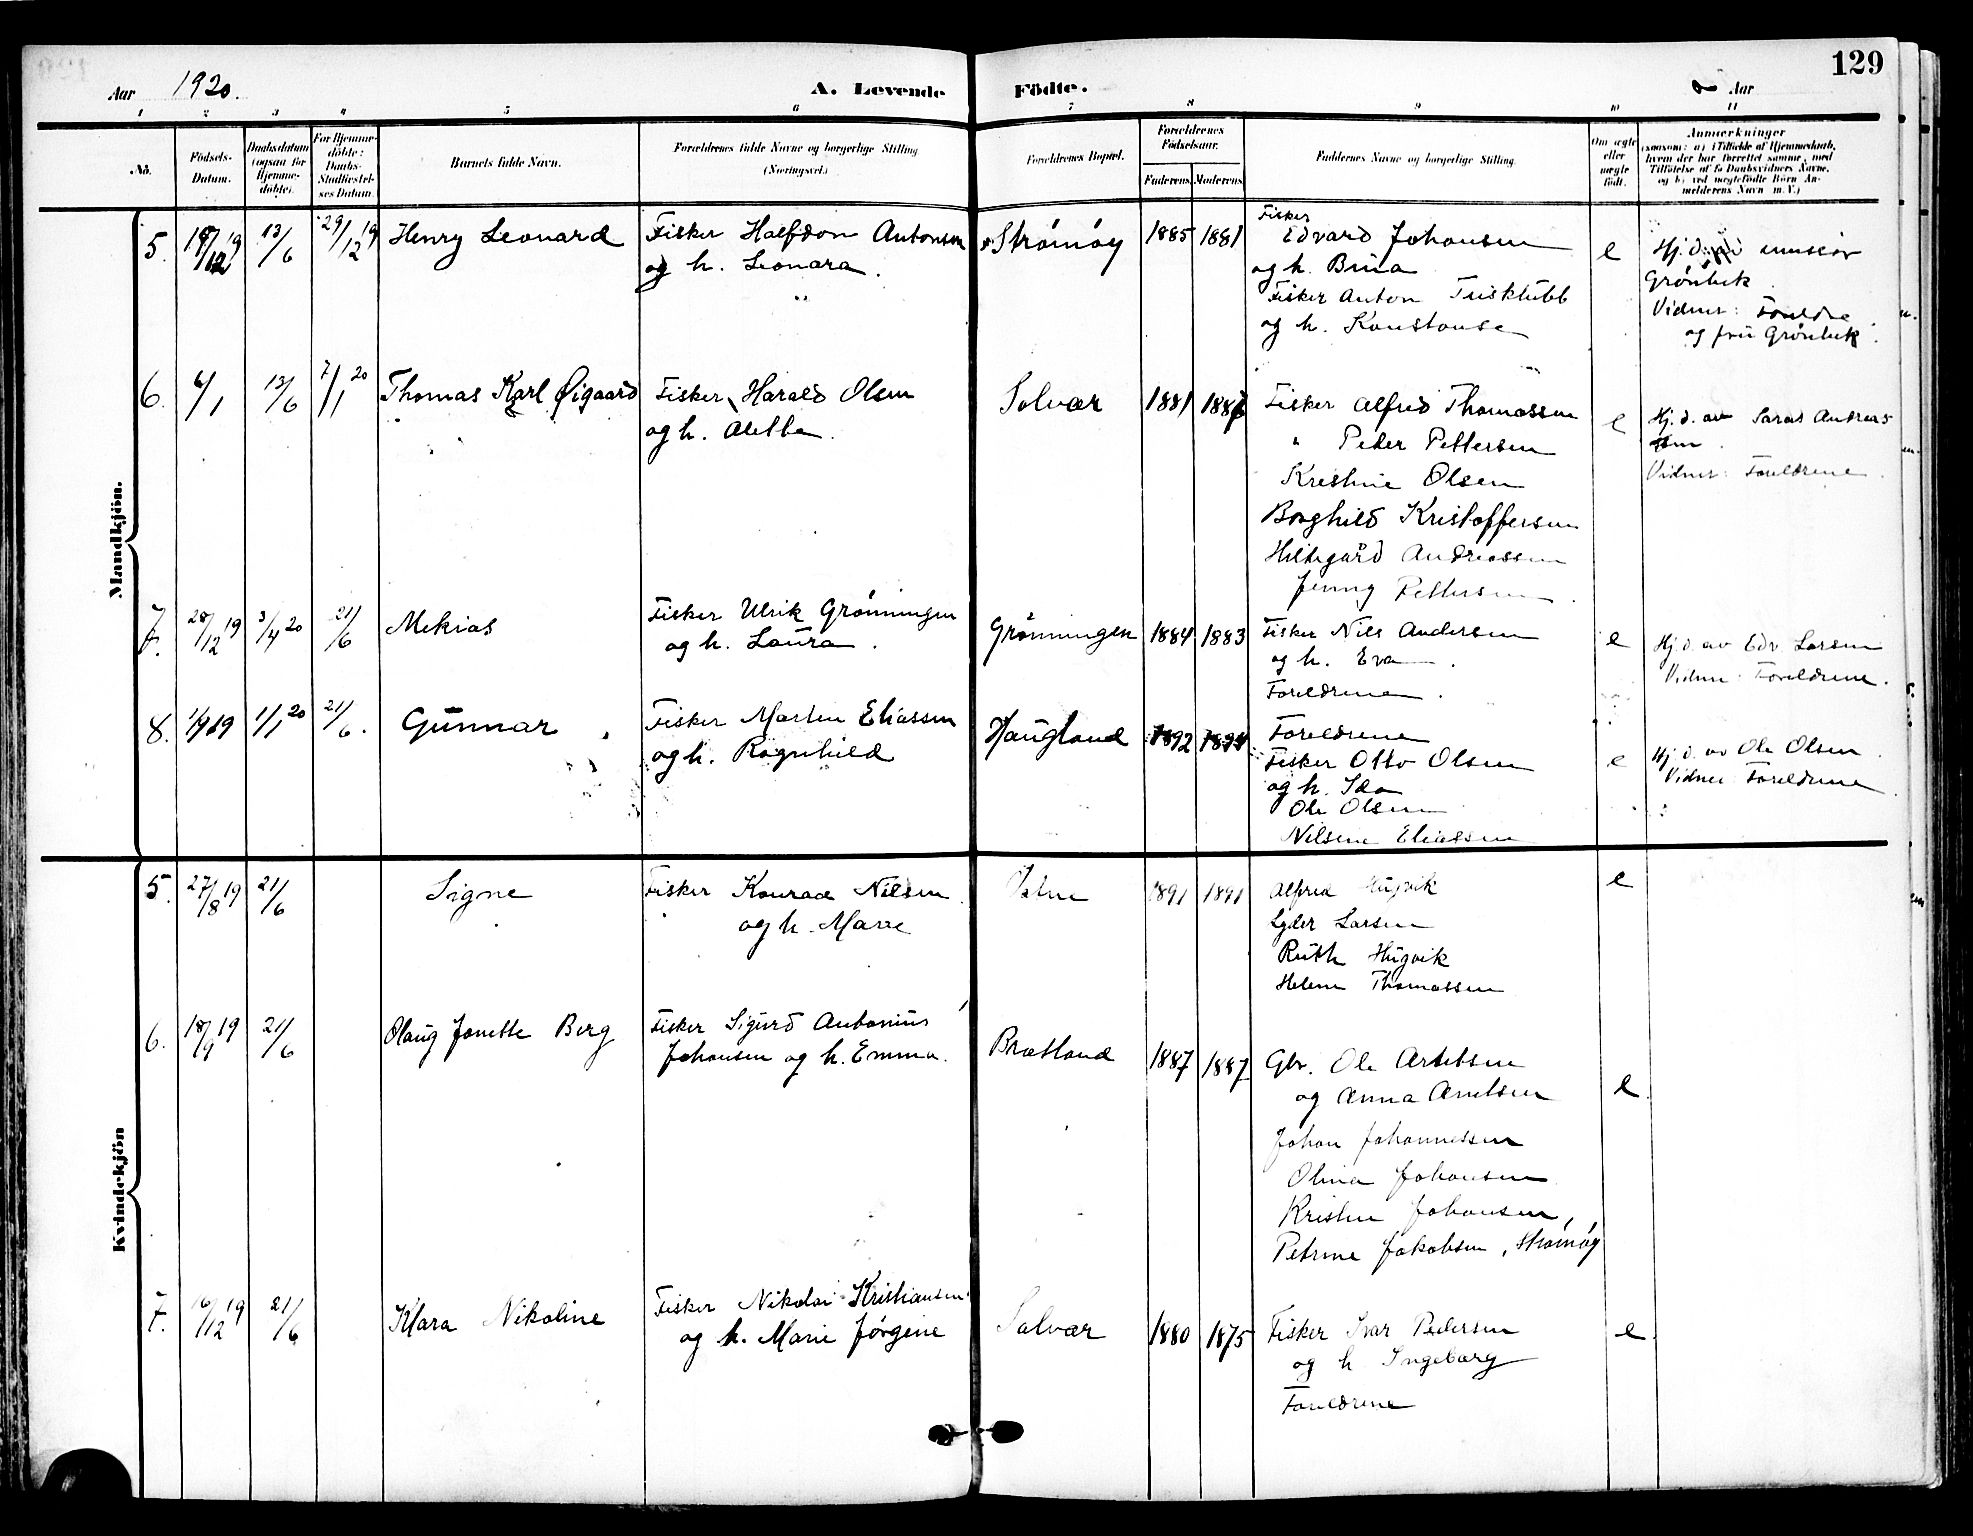 129
Aar 1920.
A. Levende Födte.
Aar
1 2 3 4 5 6 7 8 9 10 11
No.
Födsels-Datum.
Daabsdatum (ogsaa for Hjemme-döbte).
For Hjemme-döbte: Daabs-Stadfæstel-ses Datum.
Barnets fulde Navn.
Forældrenes fulde Navne og borgerlige Stilling (Næringsvei.)
Forældrenes Bopæl.
Forældrenes Födselsaar.
Faderens. Moderens.
Faddernes Navne og borgerlige Stilling.
Om ægte eller uægte födt.
Anmærkninger
(saasom: a) i Tilfælde af Hjemmedaab,
hvem der har forrettet samme, med
Tilföielse af to Daabsvidners Navne,
og b) ved uægtefödte Börn An-
melderens Navn m. V.)
Mandkjön.
5. 13/6 29/12 19 Henry Leonard
Fisker Halfdan Antonsen
og h. Leonara.
Strømøy 1885 1881
Fisker
Edvard Johansen
og h. Brina
Fisker Anton
og h. Konstanse
e
Hj.d.
Grönbek
Vidner: Foreldre
og fru Grönbek.
6. 6/1 13/6 7/1 20 Thomas Karl Øigaard
Fisker Harald Olsen
og h. Alette.
Solvær 1881
Fisker Alfred Thomassen
" Peder Pettersen
Kristine Olsen
Borghild Kristoffersen
Hildegård Andreassen
Jenny Pettersen
e
Hj.d. av Andreas
sen.
Vidner: Foreldrene
7. 28/12 19 3/4 20 21/6 Mekias
Fisker Ulrik Grønningen
og h. Laura.
Grønningen 1884 1883
Fisker Nils Andersen
og h. Eva.
Foreldrene.
e
Hj.d. av Edv. Larsen
Vidner: Foreldrene.
8. 1/1 20 21/6. Gunnar
Fisker Marten Eliassen
og h. Ragnhild
Haugland 1892
Foreldrene
Fisker Otto Olsen
og h. Ida
Ole Olsen
Nilsine Eliassen
e
Hj.d. av Ole Olsen
Vidner Foreldrene
Kvindekjön
5. 27/8 19 21/6 Signe
Fisker Konrad Nilsen
og h. Marie
1891 1891
Alfred Hugvik
Lyder Larsen
Ruth Hugvik
Helene Thomassen
e
6. 18/9 19 21/6 Olaug Jonette Berg
Fisker Sigurd Antonius
Johansen og h. Emma.
Bratland 1887 1887
Gbr. Ole
og Anna
Johan Johannessen
Olina Johansen
Kristine Johansen,
Petrine Jakobsen, Strömöy
e
7. 21/6 Klara Nikoline
Fisker Nikolai Kristiansen
og h. Marie Jørgine
Solvær 1880 1875
Fisker Ivar Pedersen
og h Ingeborg
Foreldrene
e